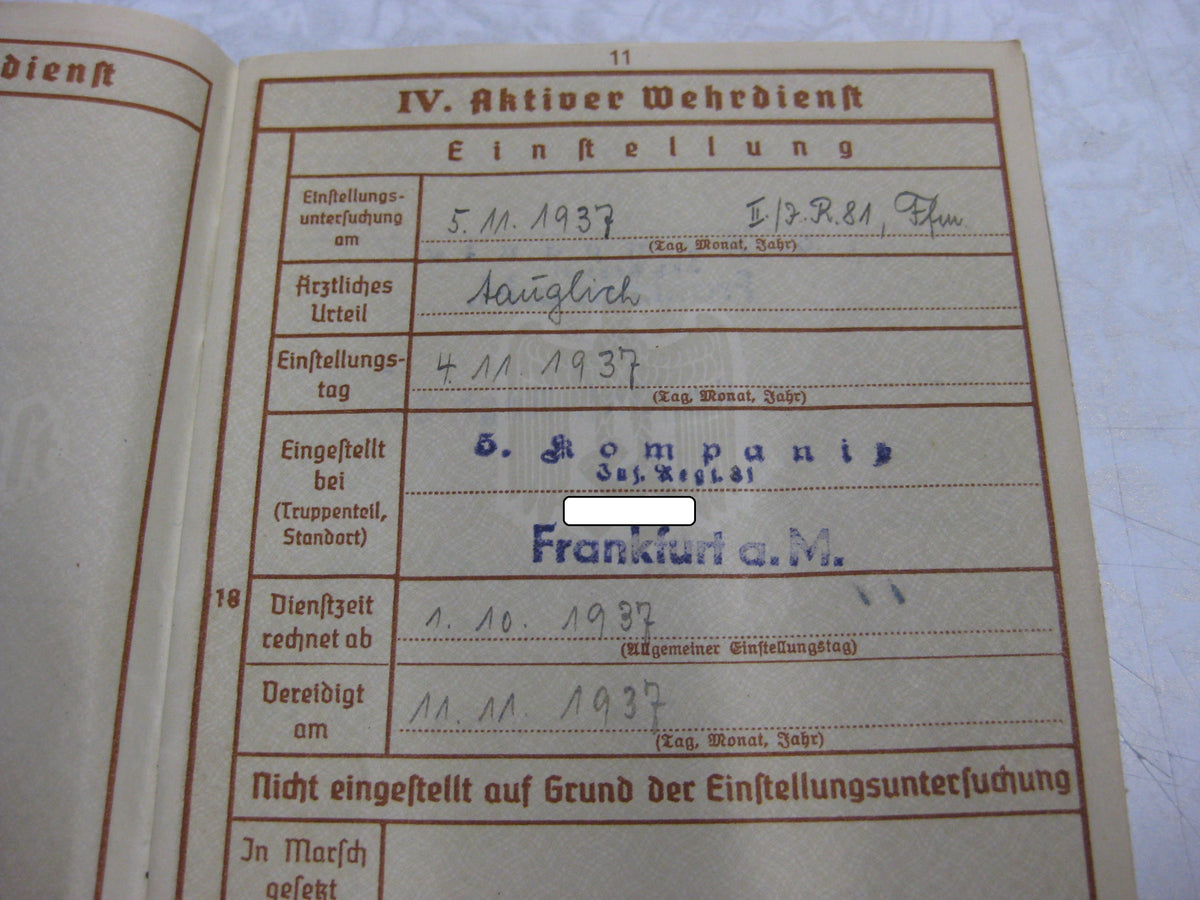 dienst
11
IV. Aktiver Wehrdienst
Einstellung
Einstellungs-
untersuchung
am
5. 11. 1937 II./J. R. 81, Ffm.
(Tag, Monat, Jahr)
Ärztliches
Urteil
tauglich
Einstellungs-
tag
4. 11. 1937
(Tag, Monat, Jahr)
Eingestellt
bei
(Truppenteil,
Standort)
5. Kompanie
Inf. Regt. 81
Frankfurt a. M.
18
Dienstzeit
rechnet ab
1. 10. 1937
(Allgemeiner Einstellungstag)
Vereidigt
am
11. 11. 1937
(Tag, Monat, Jahr)
Nicht eingestellt auf Grund der Einstellungsuntersuchung
In Marsch
gesetzt